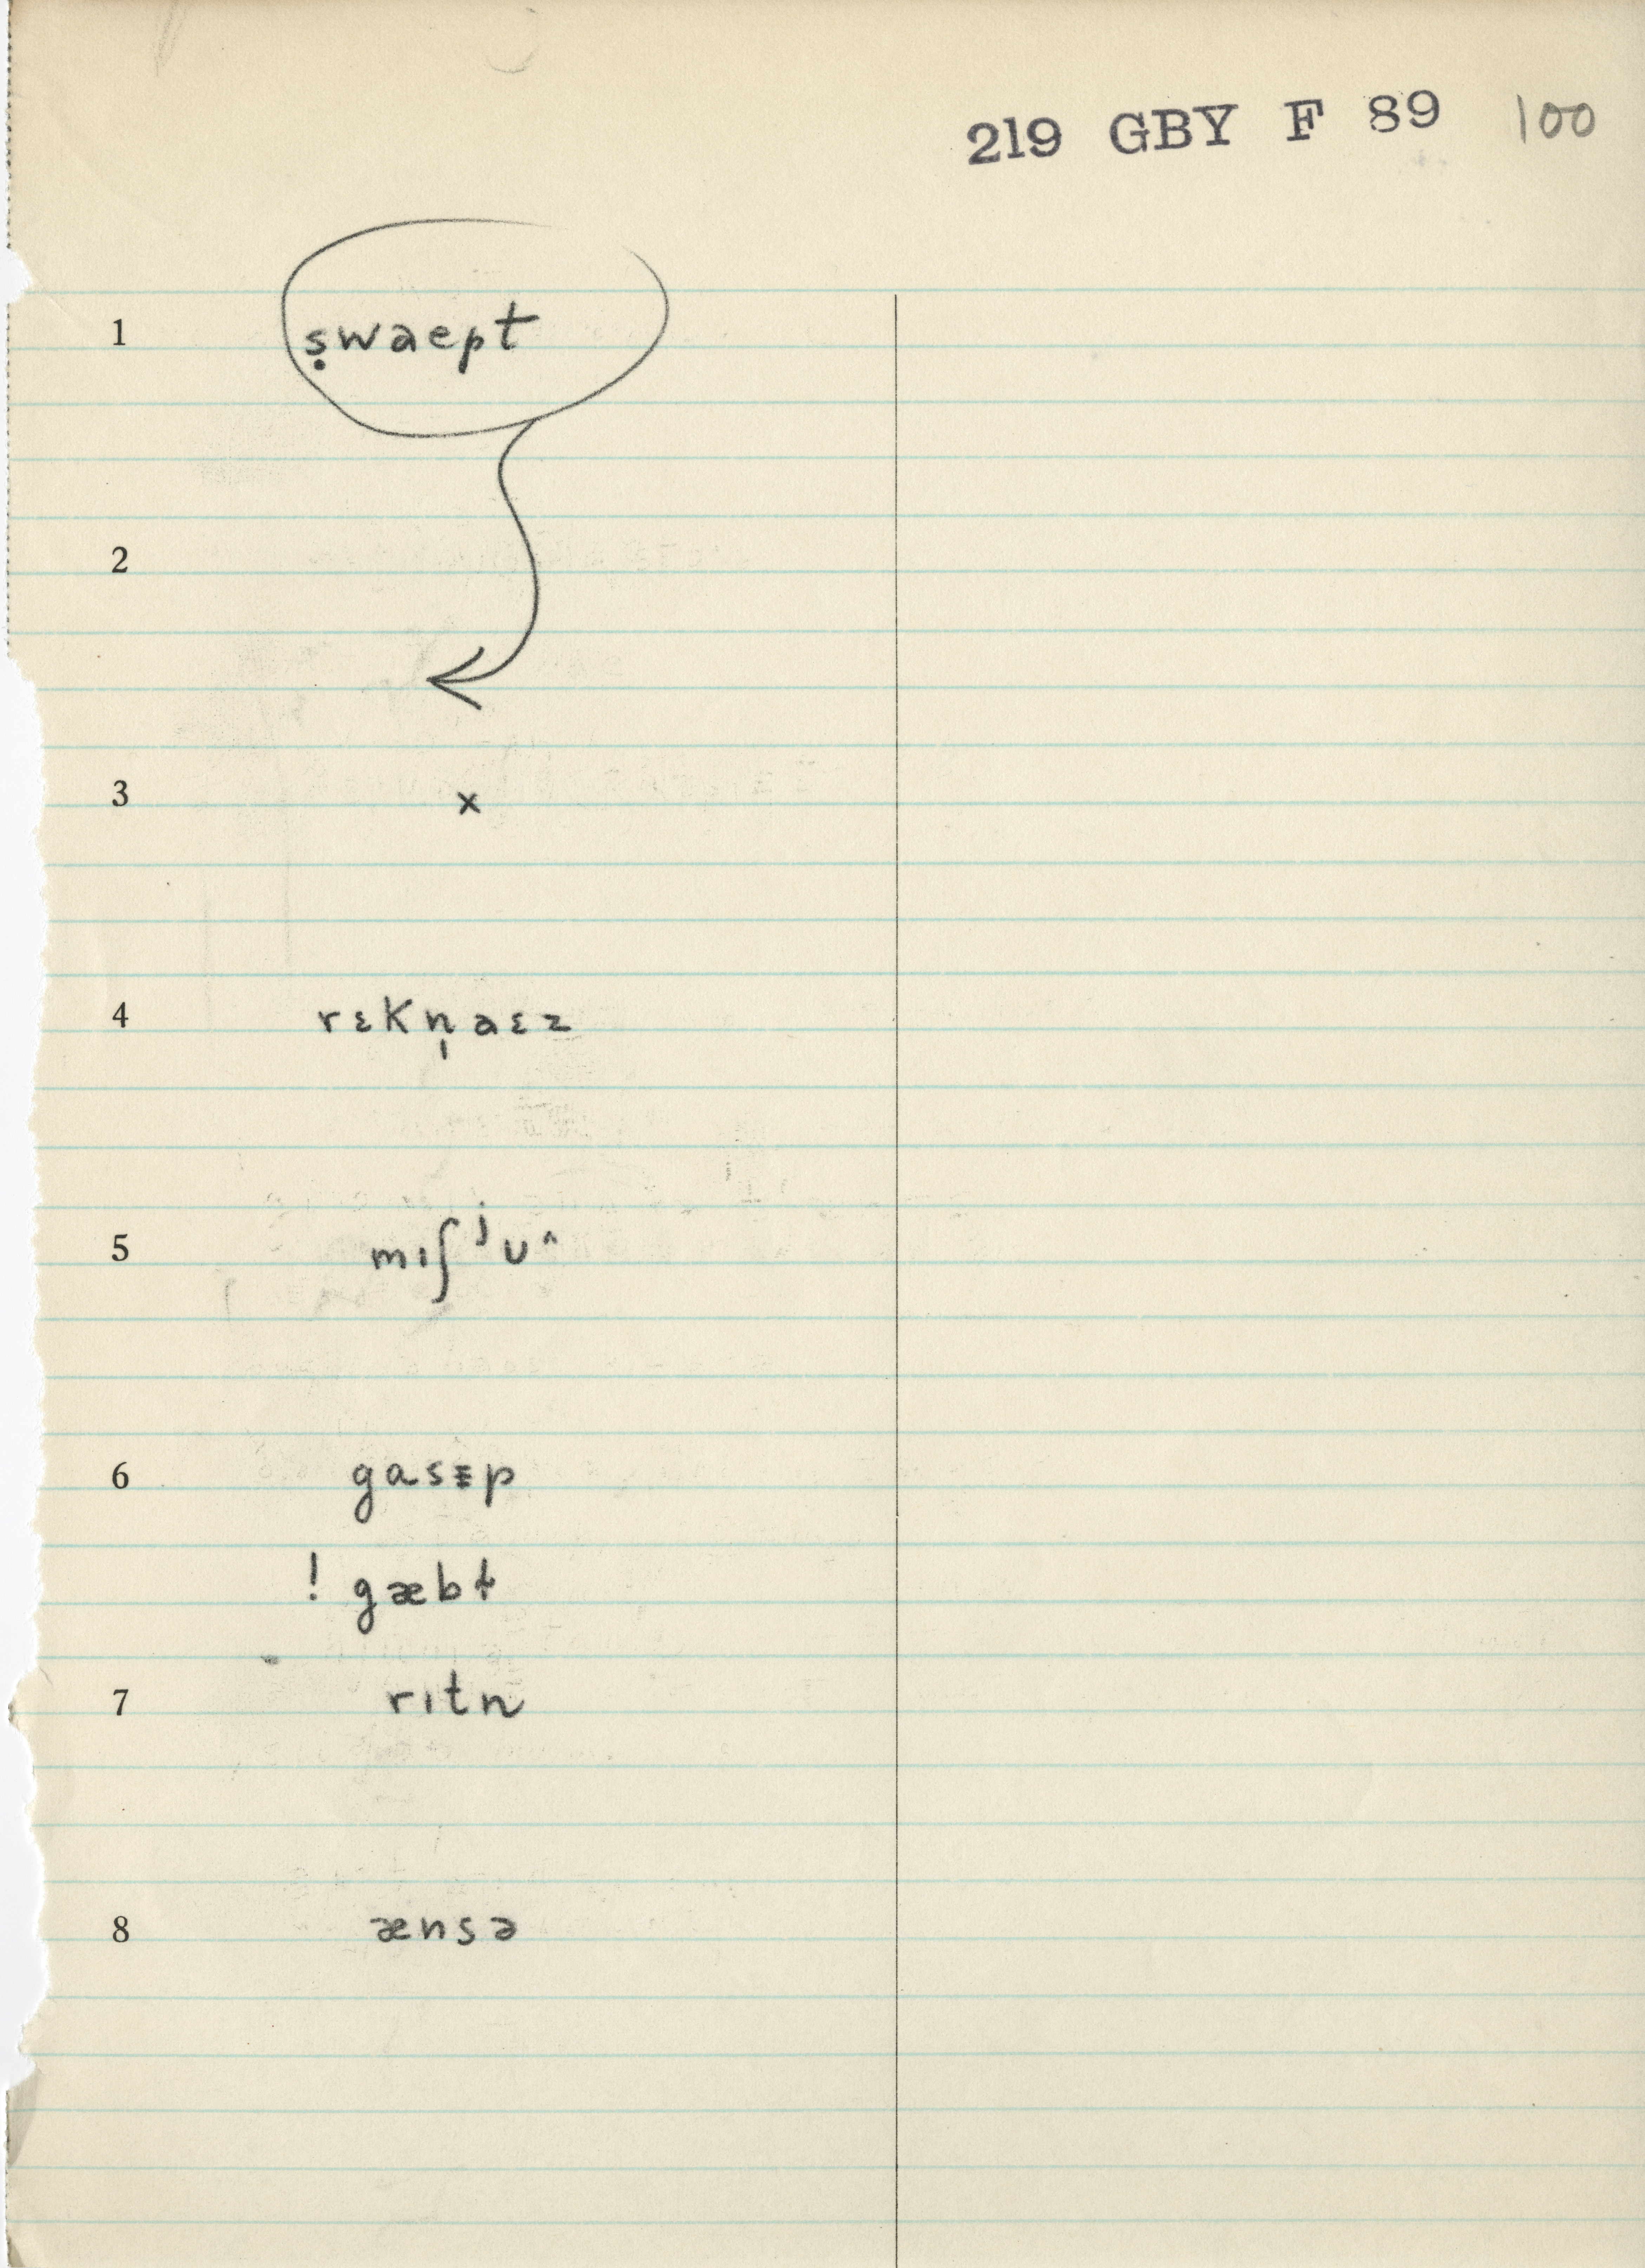 219 GBY F 89 100
1 ṣwaept
2
3 x
4 rɛkn̩aɛz
5 mɪʃʲᴜ^
6 gasɪp
! gæbt
7 rɪtn
8 ænsə